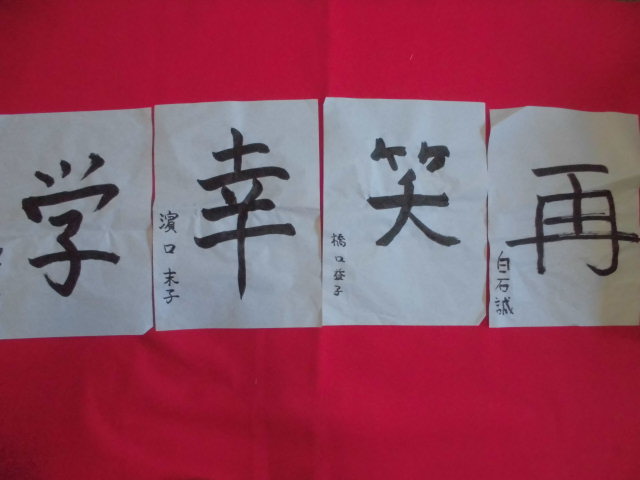 学
幸
濵口末子
笑
橋口益子
再
白石誠